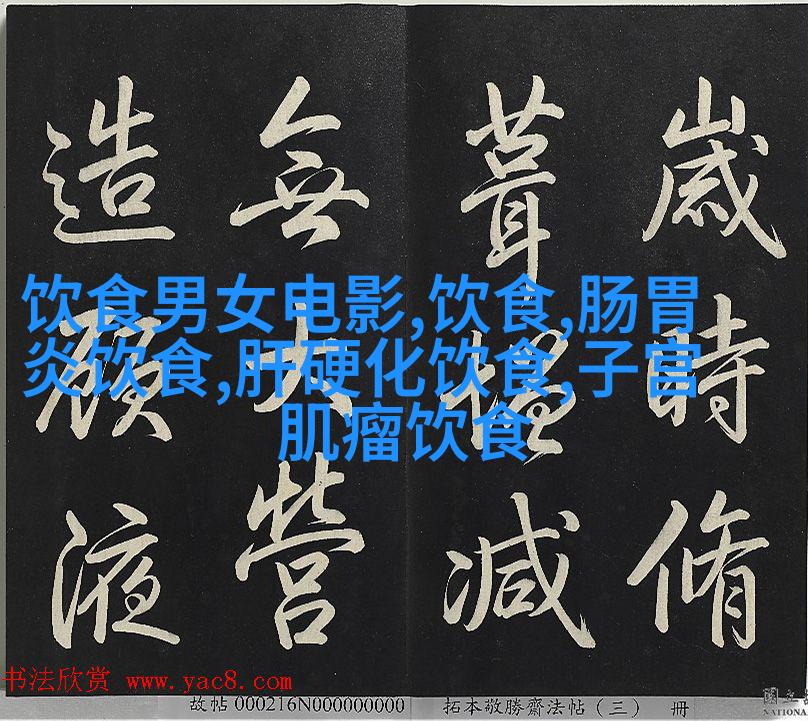 歲時脩
葺减
無大營
造顧液
饮食男女电影,饮食,肠胃
炎饮食,肝硬化饮食,子宫
肌瘤饮食
书法欣赏 www.yac8.com
故帖 000216N000000000 拓本敬勝齋法帖(三) 冊
國立
NATIONA